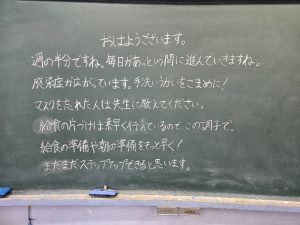 おはようございます。
週の半分ですね。毎日があっという間に進んでいきますね。
感染症が広がっています。手洗いうがいをこまめに！
マスクを忘れた人は先生に教えてください。
給食の片づけは素早く行えているので、この調子で、
給食の準備や朝の準備をもっと早く！
まだまだステップアップできると思います。